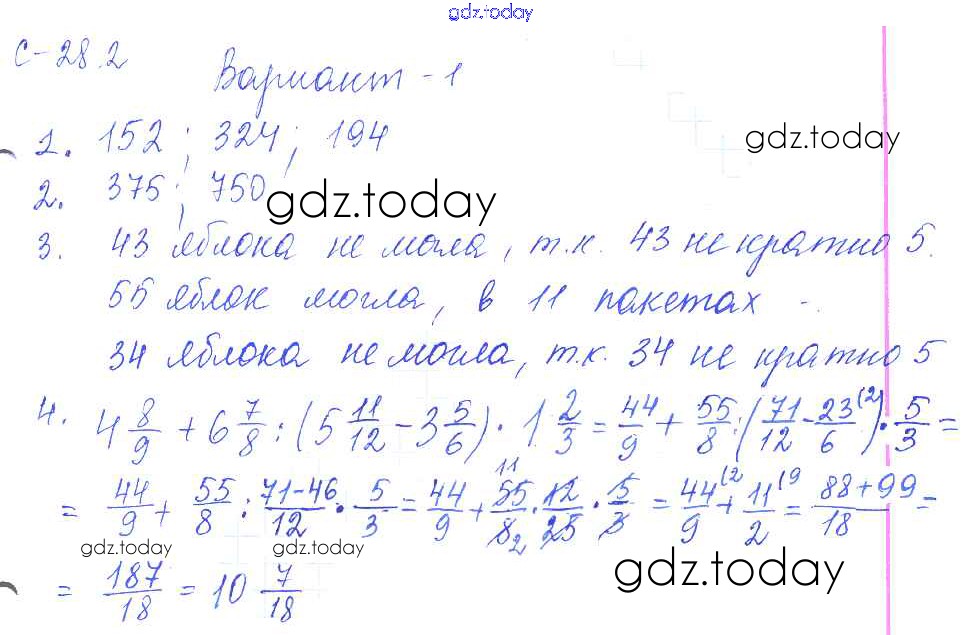 gdz.today
С-28.2
Вариант - 1
gdz.today
1. 152; 324; 194
2. 375; 750
gdz.today
3. 43 яблока не могла, т.к. 43 не кратно 5.
55 яблок могла, в 11 пакетах -.
34 яблока не могла, т.к. 34 не кратно 5
4. 4 8/9 + 6 7/8 : (5 11/12 - 3 5/6) · 1 2/3 = 44/9 + 55/8 : (71/12 - 23/6 (2) · 5/3 =
= 44/9 + 55/8 : 71-46/12 · 5/3 = 44/9 + 55/8 · 12/25 · 5/3 = 44/9 (2 + 11/2 (9 = 88+99/18 =
11
2
gdz.today
gdz.today
gdz.today
= 187/18 = 10 7/18